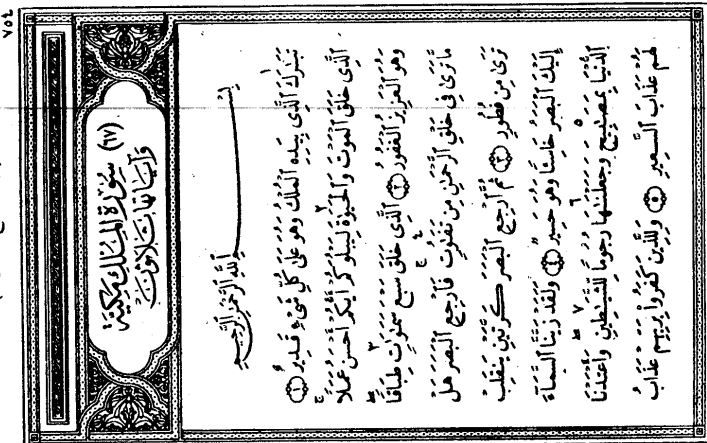 ٧٥٤
(٦٧) سُورَةُ الْمُلْكِ مَكِّيَّة
وَآيَاتُهَا ثَلَاثُونَ
بِسْمِ ٱللَّهِ ٱلرَّحْمَٰنِ ٱلرَّحِيمِ
تَبَٰرَكَ ٱلَّذِى بِيَدِهِ ٱلْمُلْكُ وَهُوَ عَلَىٰ كُلِّ شَىْءٍ قَدِيرٌ ﴿١﴾
ٱلَّذِى خَلَقَ ٱلْمَوْتَ وَٱلْحَيَوٰةَ لِيَبْلُوَكُمْ أَيُّكُمْ أَحْسَنُ عَمَلًا
وَهُوَ ٱلْعَزِيزُ ٱلْغَفُورُ ﴿٢﴾ ٱلَّذِى خَلَقَ سَبْعَ سَمَٰوَٰتٍ طِبَاقًا
مَّا تَرَىٰ فِى خَلْقِ ٱلرَّحْمَٰنِ مِن تَفَٰوُتٍ فَٱرْجِعِ ٱلْبَصَرَ هَلْ
تَرَىٰ مِن فُطُورٍ ﴿٣﴾ ثُمَّ ٱرْجِعِ ٱلْبَصَرَ كَرَّتَيْنِ يَنقَلِبْ
إِلَيْكَ ٱلْبَصَرُ خَاسِئًا وَهُوَ حَسِيرٌ ﴿٤﴾ وَلَقَدْ زَيَّنَّا ٱلسَّمَآءَ
ٱلدُّنْيَا بِمَصَٰبِيحَ وَجَعَلْنَٰهَا رُجُومًا لِّلشَّيَٰطِينِ وَأَعْتَدْنَا
لَهُمْ عَذَابَ ٱلسَّعِيرِ ﴿٥﴾ وَلِلَّذِينَ كَفَرُوا۟ بِرَبِّهِمْ عَذَابُ